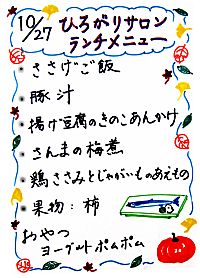 10/27 ひろがりサロン
ランチメニュー
・ささげご飯
・豚汁
・揚げ豆腐のきのこあんかけ
・さんまの梅煮
・鶏ささみとじゃがいものあえもの
・果物:柿
おやつ
ヨーグルトポムポム